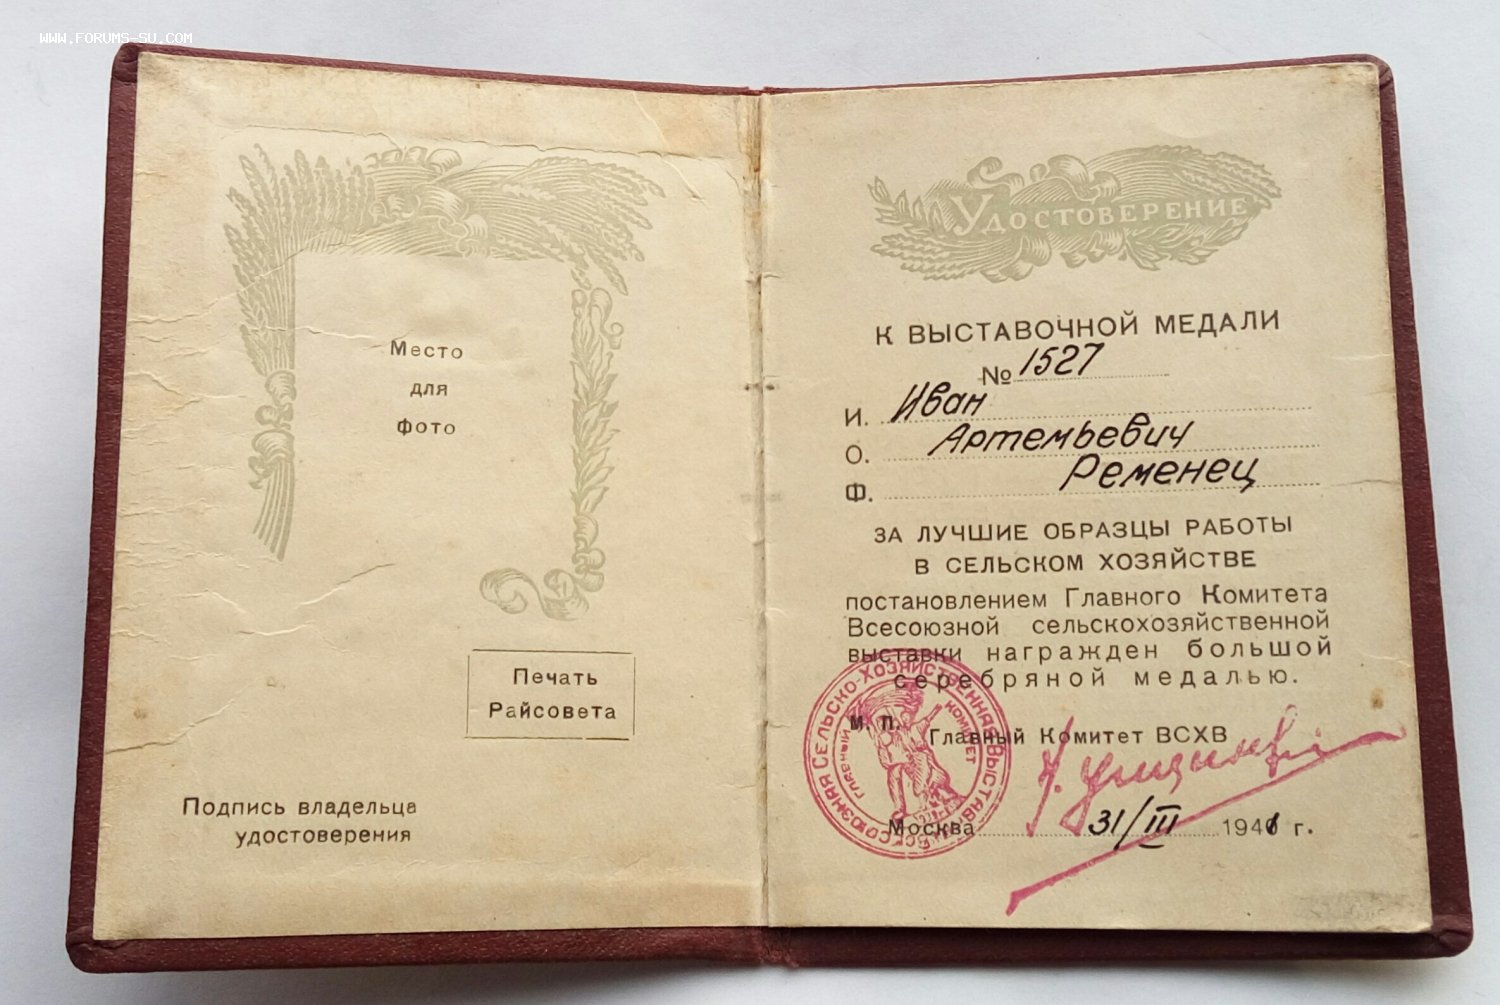 www.forums-su.com
Место
для
фото
Печать
Райсовета
Подпись владельца
удостоверения
Удостоверение
К ВЫСТАВОЧНОЙ МЕДАЛИ
№ 1527
И. Иван
О. Артемьевич
Ф. Ременец
ЗА ЛУЧШИЕ ОБРАЗЦЫ РАБОТЫ
В СЕЛЬСКОМ ХОЗЯЙСТВЕ
постановлением Главного Комитета
Всесоюзной сельскохозяйственной
выставки награжден большой
серебряной медалью.
М. П. Главный Комитет ВСХВ
Всесоюзная Сельско-Хозяйственная Выставка
Главный Комитет
Москва 31/III 1941 г.